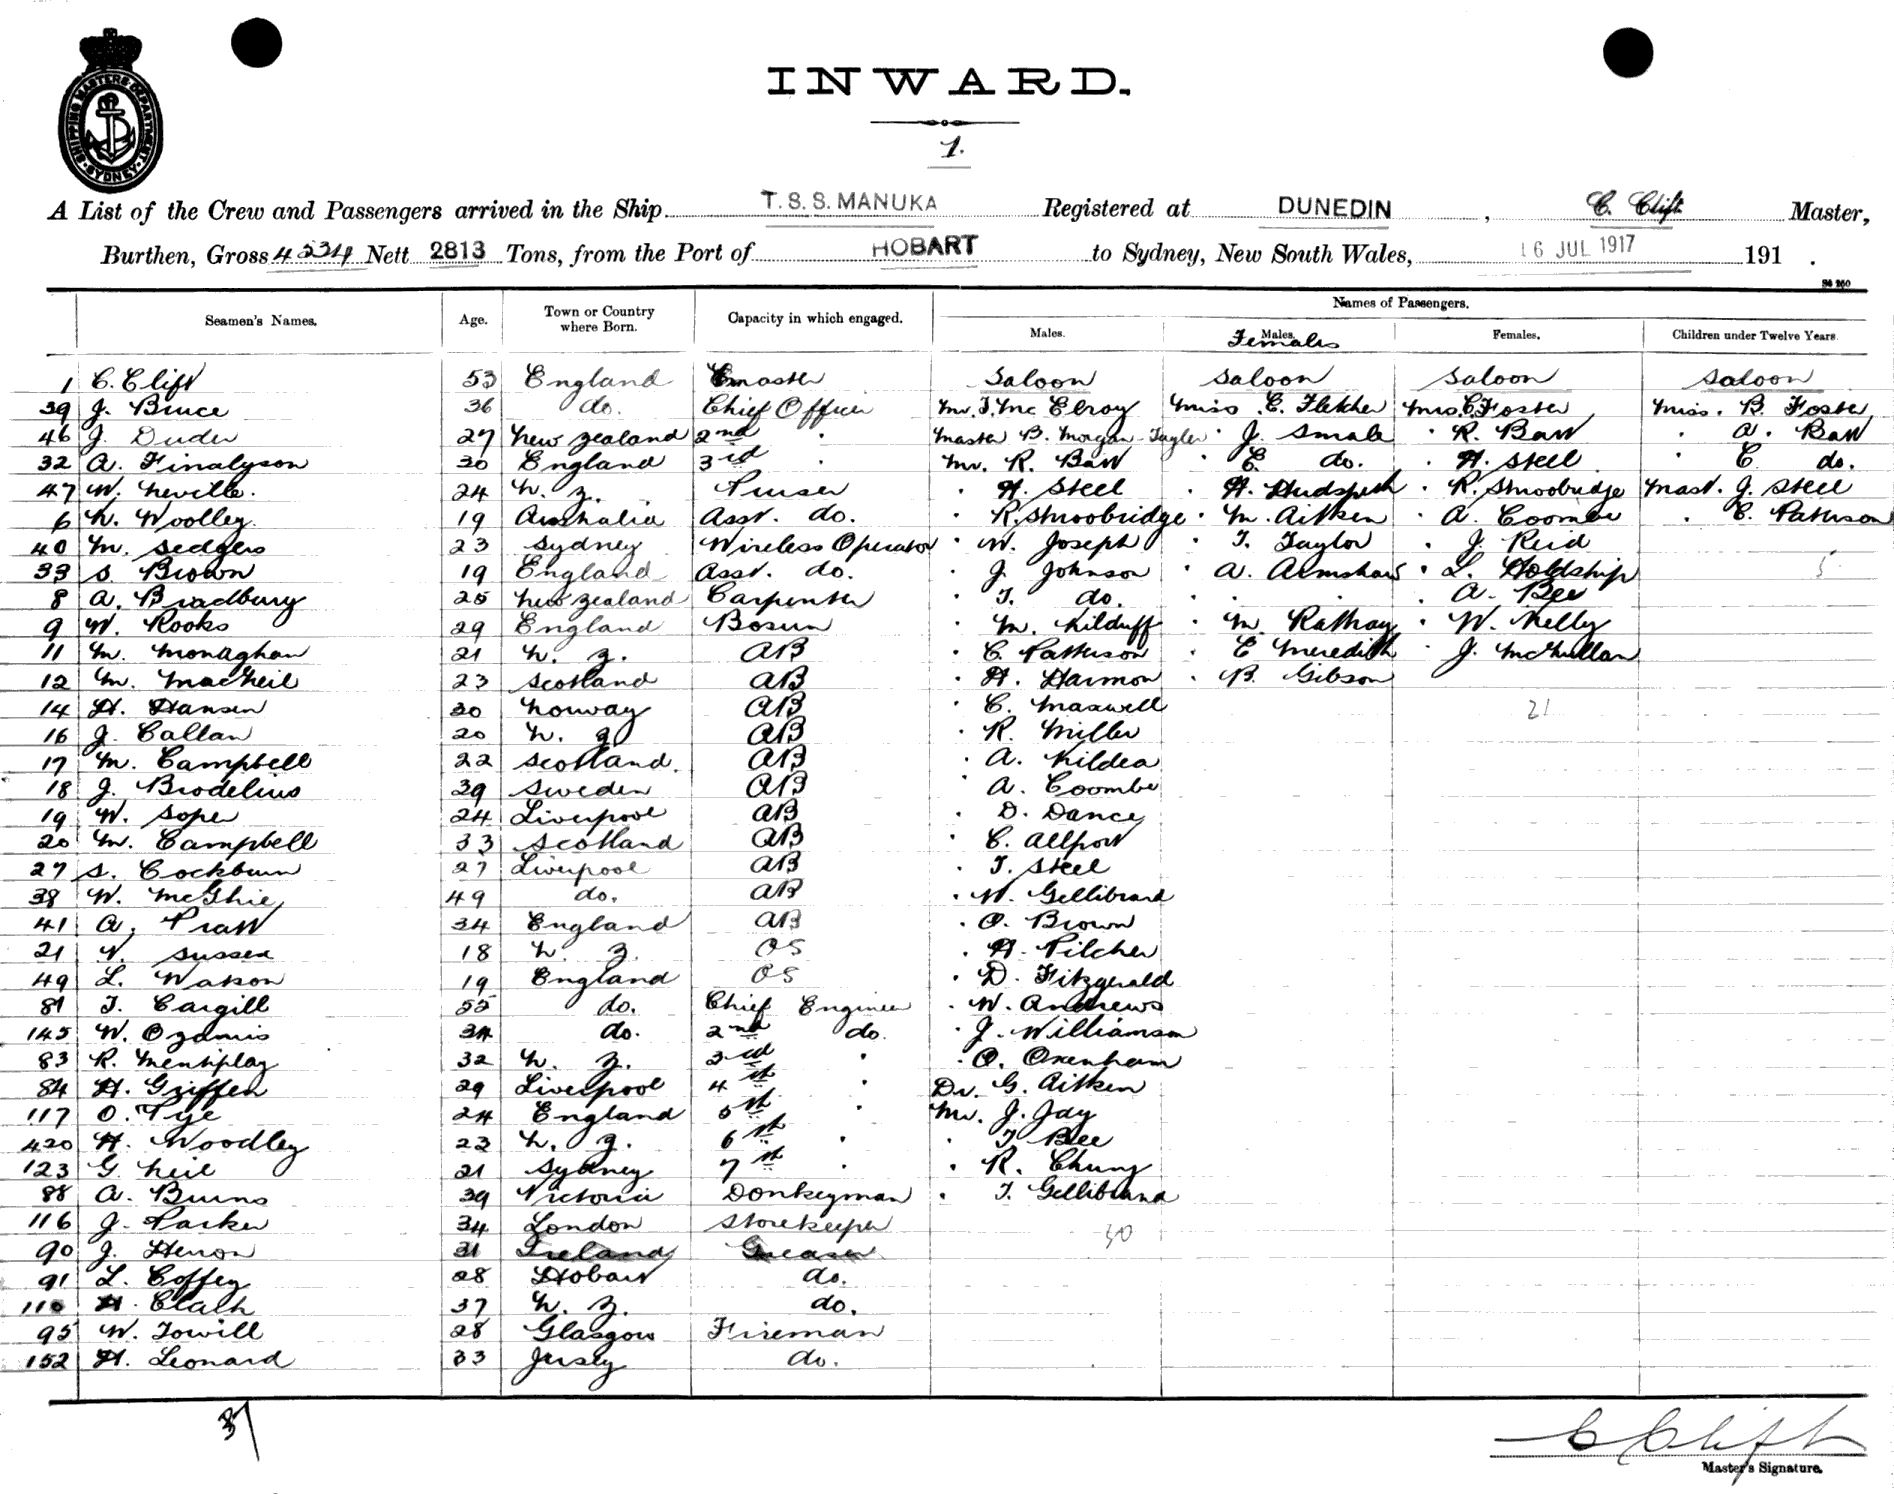 SHIPPING MASTERS DEPARTMENT SYDNEY
INWARD.
1.
A List of the Crew and Passengers arrived in the Ship T.S.S. MANUKA Registered at DUNEDIN, C. Clift Master,
Burthen, Gross 4534 Nett 2813 Tons, from the Port of HOBART to Sydney, New South Wales, 16 JUL 1917 191 .
Seamen's Names. Age. Town or Country where Born. Capacity in which engaged. Names of Passengers.
Males. Males. Females Females. Children under Twelve Years.
1 C. Clift 53 England Master Saloon Saloon Saloon Saloon
39 J. Bruce 36 do. Chief Officer Mr. J. McElroy Miss E. Fletcher Mrs C. Foster Miss. B. Foster
46 J. Duder 27 New Zealand 2nd " Master B. Morgan-Taylor " J. Smale " R. Batt " A. Batt
32 A. Finalyson 30 England 3rd " Mr. R. Batt " E. do. " H. Steel " E do.
47 W. Neville. 24 N. Z. Purser " H. Steel " H. Hudspeth " R. Shoobridge Mast. J. Steel
6 N. Woolley. 19 Australia Asst. do. " R. Shoobridge " M. Aitken " A. Coombe " C. Patterson
40 M. Sedgers 23 Sydney Wireless Operator " W. Joseph " T. Taylor " J. Reid
33 S. Brown 19 England Asst. do. " J. Johnson " A. Armshaw " L. Holdship 5
8 A. Bradbury 25 New Zealand Carpenter " T. do. " A. Bee
9 W. Rooks 29 England Bosun " M. Kilduff " M. Rattray " W. Kelly
11 M. Monaghan 21 N. Z. AB " C. Patterson " E Meredith " J. McMullan
12 M. MacNeil 23 Scotland AB " H. Harmon " B. Gibson
14 H. Hansen 30 Norway AB " C. Maxwell 21
16 J. Callan 20 N. Z AB " R. Miller
17 M. Campbell 22 Scotland. AB " A. Kildea
18 J. Brodelius 39 Sweden AB " A. Coombe
19 W. Soper 24 Liverpool AB " D. Dance
20 M. Campbell 33 Scotland AB " C. Allport
27 S. Cockburn 27 Liverpool AB " T. Steel
38 W. McGhie 49 do. AB " W. Gellibrand
41 A. Pratt 34 England AB " O. Brown
21 V. Sussex 18 N. Z. OS " H. Pilcher
49 L. Watson 19 England OS " D. Fitzgerald
81 T. Cargill 55 do. Chief Engineer " W. Andrews
145 W. Ozamis 34 do. 2nd do. " J. Williamson
83 R. Mentiplay 32 N. Z. 3rd " " O. Oxenham
84 H. Griffen 29 Liverpool 4th " Dr. G. Aitken
117 O. Pye 24 England 5th " Mr. J. Jay
420 H. Woodley 23 N. Z. 6th " " T Bee
123 G Neil 21 Sydney 7th " " R. Chung
88 A. Burns 39 Victoria Donkeyman " T. Gellibrand
116 J. Parker 34 London Storekeeper 30
90 J. Heron 31 Ireland Greaser
91 L. Coffey 28 Hobart do.
110 H. Clark 37 N. Z. do.
95 W. Towill 28 Glasgow Fireman
152 H. Leonard 33 Jersey do.
37
C Clift
Master's Signature.